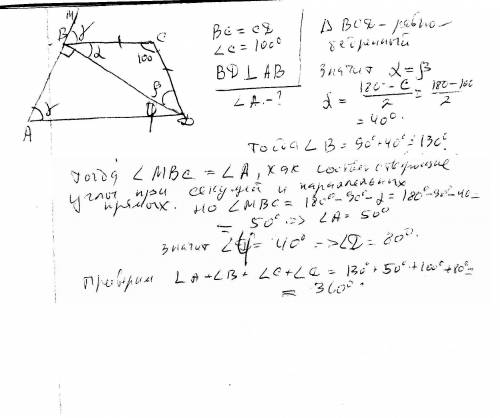 M
B γ
α
C
100
β
ψ
A γ
D
BC = CD
∠C = 100°
BD ⊥ AB
∠A - ?
Δ BCD - равно-
бедренный
Значит α = β
α = (180° - C)/2 = (180 - 100)/2
= 40°
Тогда ∠B = 90° + 40° = 130°
Тогда ∠MBC = ∠A, как соответствующие
углы при секущей и параллельных
прямых. Но ∠MBC = 180° - 90° - α = 180° - 90 - 40 =
= 50° => ∠A = 50°
Значит ∠ψ = 40° => ∠D = 80°
Проверим ∠A + ∠B + ∠C + ∠C = 130° + 50° + 100° + 80° =
= 360°